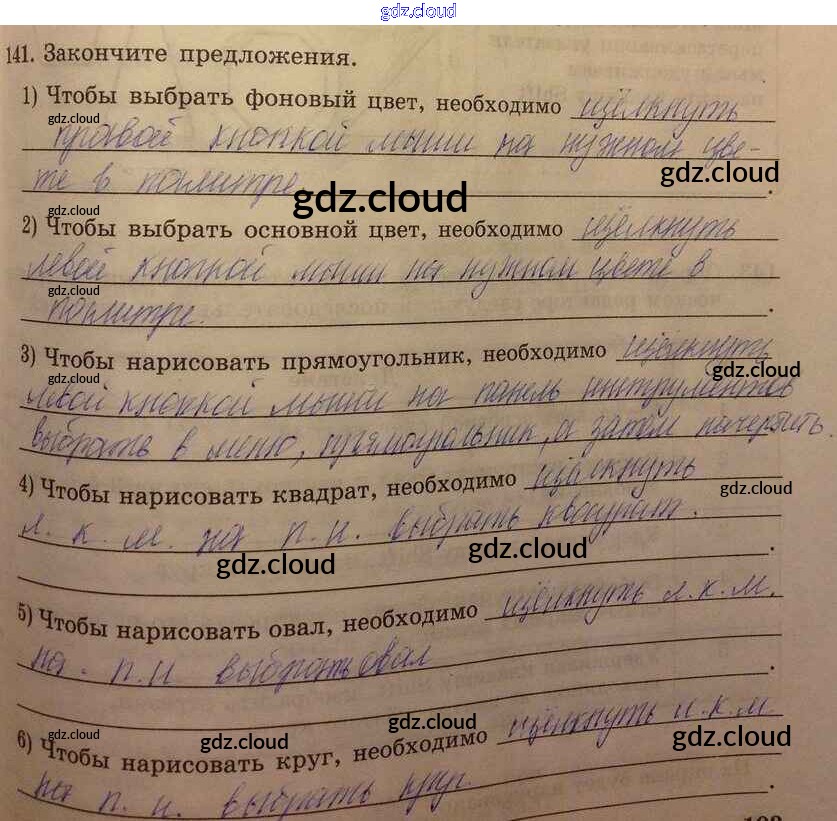 gdz.cloud
141. Закончите предложения.
1) Чтобы выбрать фоновый цвет, необходимо щёлкнуть
gdz.cloud
правой кнопкой мыши на нужном цве-
gdz.cloud
те в палитре.
gdz.cloud
gdz.cloud
2) Чтобы выбрать основной цвет, необходимо щёлкнуть
левой кнопкой мыши на нужном цвете в
gdz.cloud
палитре.
3) Чтобы нарисовать прямоугольник, необходимо щёлкнуть
gdz.cloud gdz.cloud
левой кнопкой мыши на панель инструментов
выбрать в меню, прямоугольник, а затем начертить.
4) Чтобы нарисовать квадрат, необходимо щёлкнуть
gdz.cloud gdz.cloud
л. к. м. на п. и. выбрать квадрат.
gdz.cloud gdz.cloud
5) Чтобы нарисовать овал, необходимо щёлкнуть л. к. м.
на п. и выбрать овал
gdz.cloud
6) Чтобы нарисовать круг, необходимо щёлкнуть л. к. м
gdz.cloud gdz.cloud gdz.cloud
на п. и. выбрать круг.
gdz.cloud